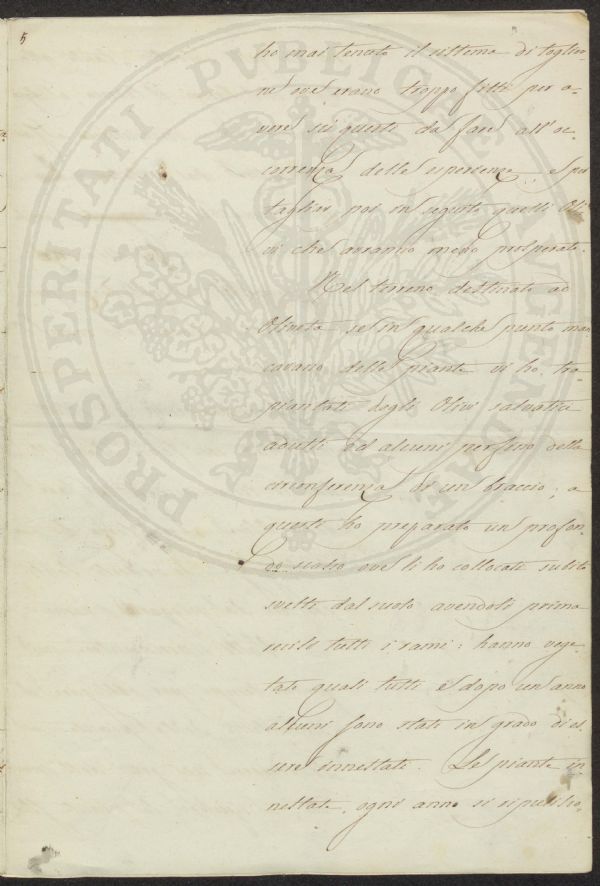 5
ho mai tenuto il sistema di toglier-
ne ove erano troppo fitti per a-
vere su questi da fare all'oc-
correnza delle esperienze, e per
tagliar poi in seguito quelli Oli-
vi che avranno meno prosperato.
Nel terreno destinato ad
Oliveta se in qualche punto man-
cavano delle piante vi ho tra-
piantati degli Olivi salvatici
adulti ed alcuni perfino della
circonferenza di un braccio; a
questi ho preparato un profon-
do scasso ove li ho collocati subito
svelti dal suolo avendoli prima
recisi tutti i rami: hanno vege-
tato quasi tutti e dopo un anno
alcuni sono stati in grado di es-
sere innestati. Le piante in-
nestate, ogni anno si ripuliscо-
PROSPERITATI PUBLICAE AUGENDAE